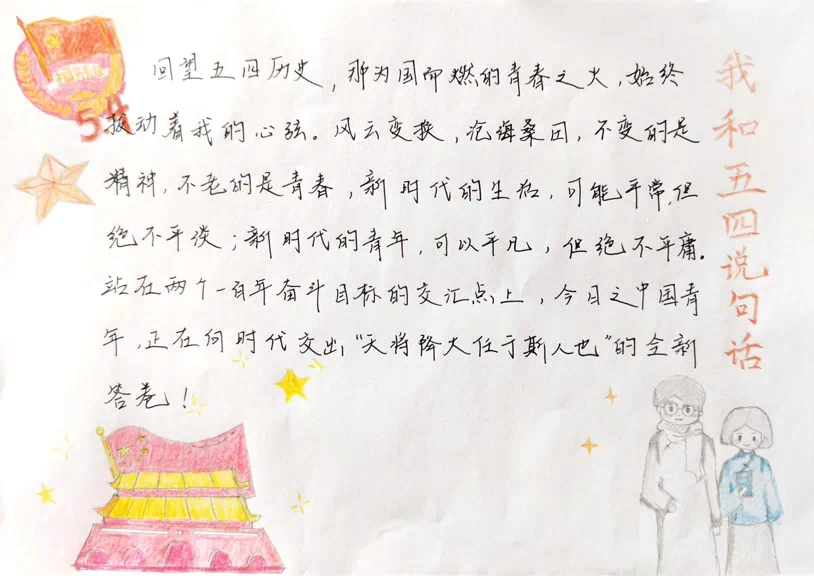 我和五四说句话
回望五四历史，那为国而燃的青春之火，始终
拨动着我的心弦。风云变换，沧海桑田，不变的是
精神，不老的是青春，新时代的生活，可能平常，但
绝不平淡；新时代的青年，可以平凡，但绝不平庸。
站在两个一百年奋斗目标的交汇点上，今日之中国青
年，正在向时代交出“天将降大任于斯人也”的全新
答卷！
54